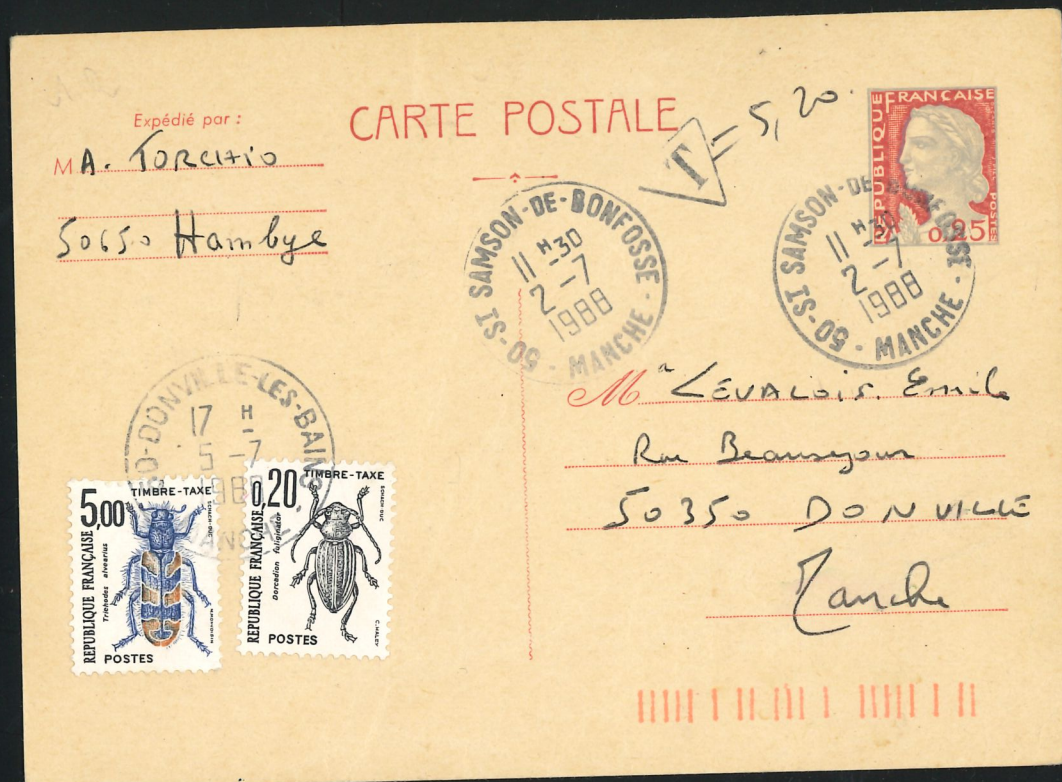 CARTE POSTALE
Expédié par :
M A. TORCHIO
50650 Hambye
T = 5,20
RÉPUBLIQUE FRANÇAISE
POSTES
0,25
50-ST SAMSON-DE-BONFOSSE - MANCHE -
11 H30
2 -7
1988
50-ST SAMSON-DE-BONFOSSE - MANCHE -
11 H30
2 -7
1988
M LEVALOIS. Emile
Rue Beausejour
50350 DONVILLE
Manche
50-DONVILLE-LES-BAINS
17 H
5 -7
1988
MANCHE
5,00
TIMBRE-TAXE
RÉPUBLIQUE FRANÇAISE
Trichodes alvearius
POSTES
0,20
TIMBRE-TAXE
RÉPUBLIQUE FRANÇAISE
Dorcadion fuliginator
POSTES